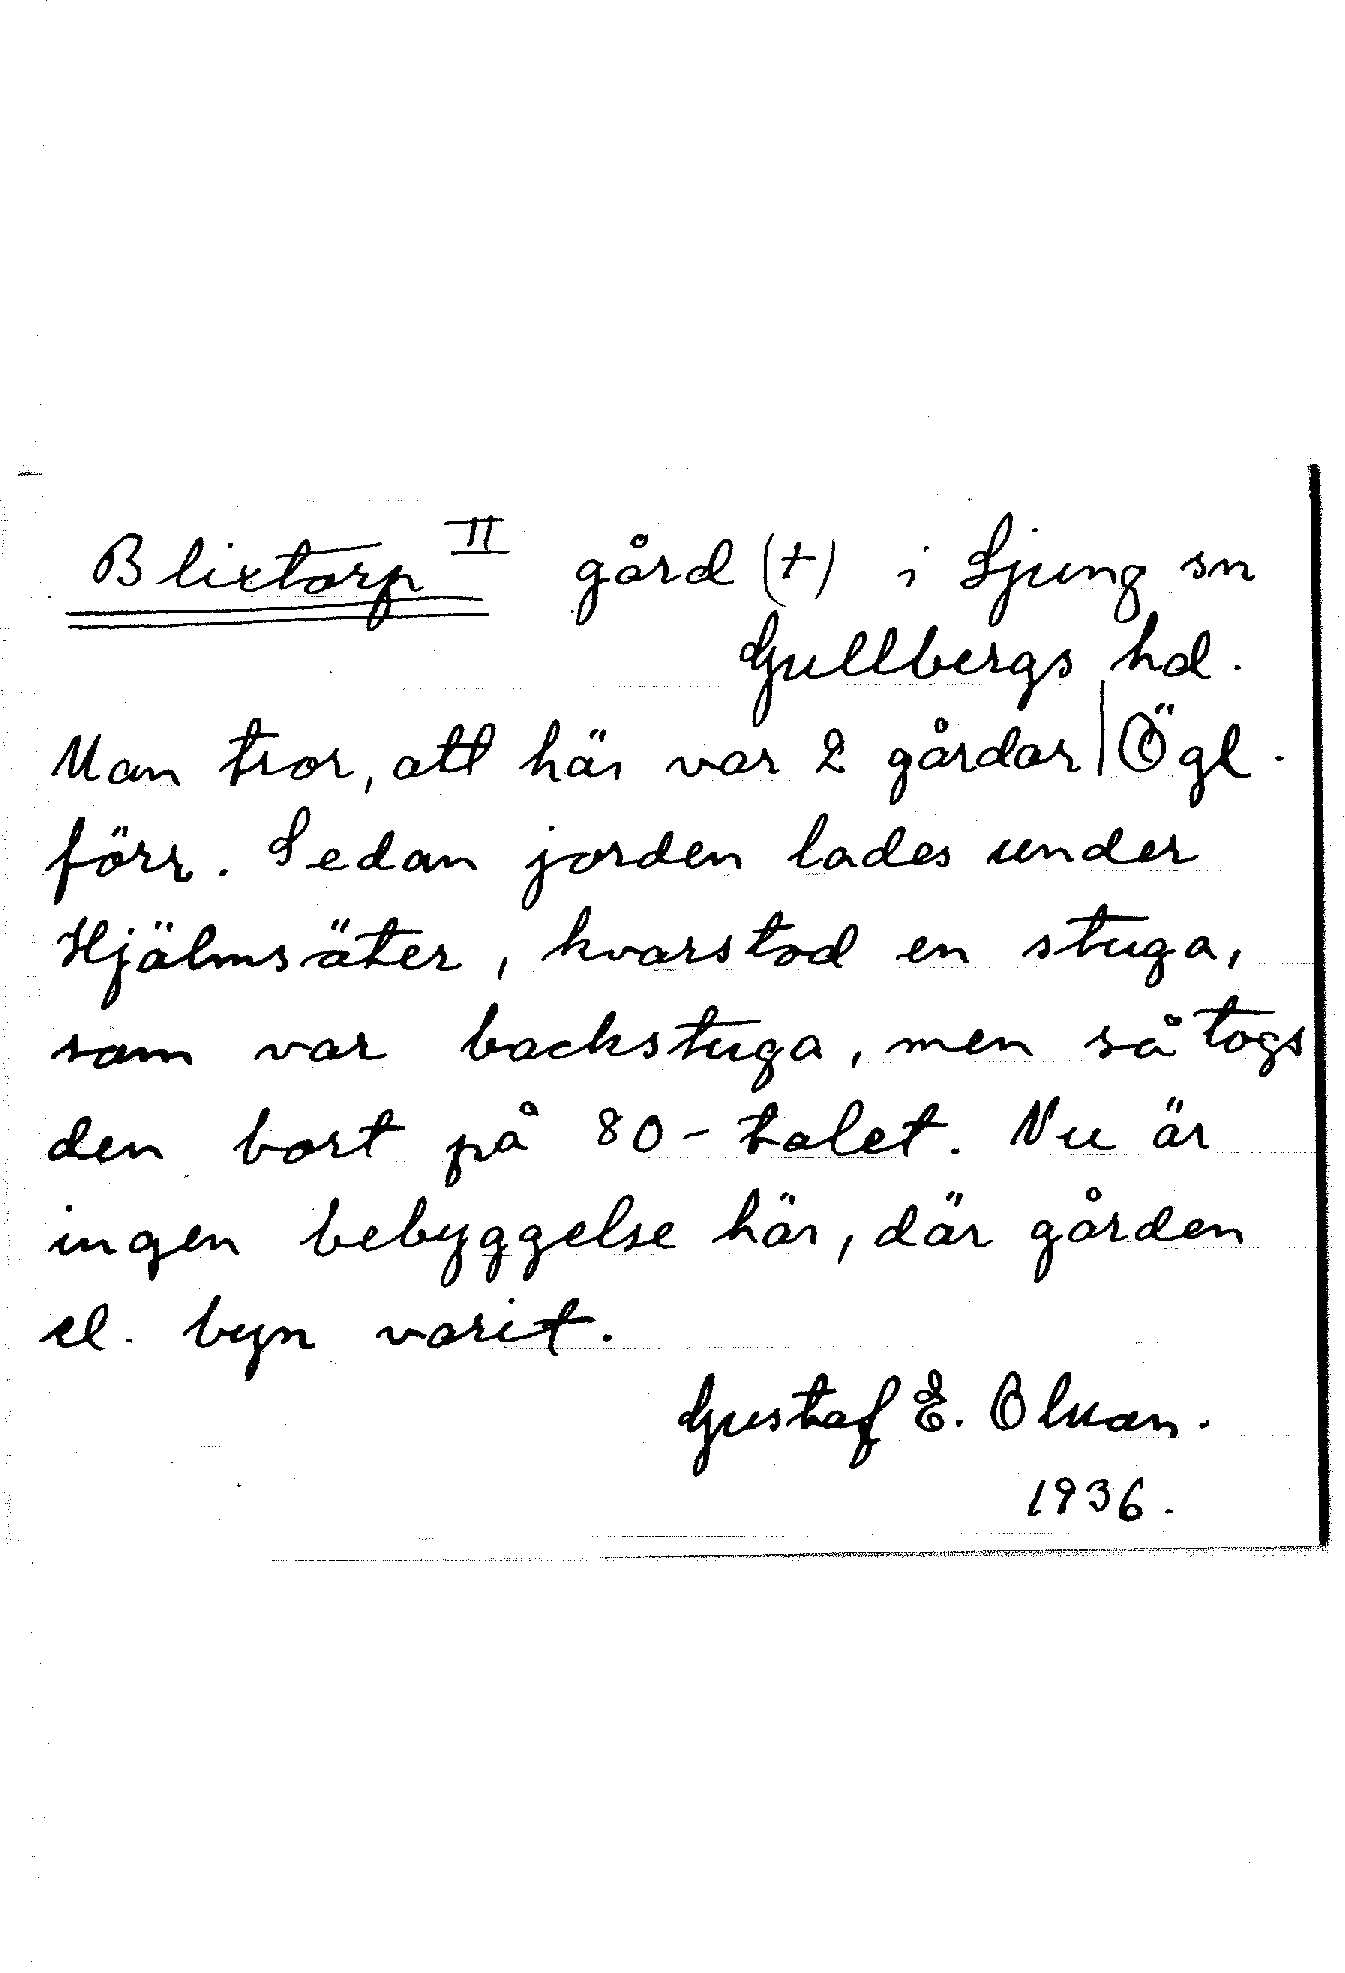 Blixtorp II gård (+) i Ljung sn
Gullbergs hd.
Man tror, att här var 2 gårdar | Ögl.
förr. Sedan jorden lades under
Hjälmsäter, kvarstod en stuga,
som var backstuga, men så togs
den bort på 80-talet. Nu är
ingen bebyggelse här, där gården
el. byn varit.
Gustaf E. Olvan.
1936.